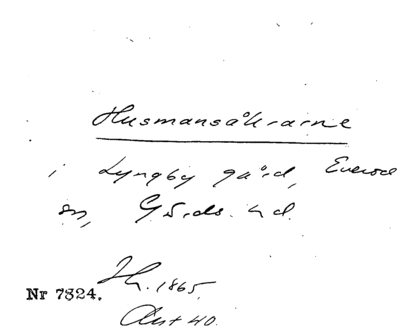 Husmansåkrarne
i Lyngby gård, Everöd
sn, Gärds hd.
Nr 7824. 1865.
Akt 40.